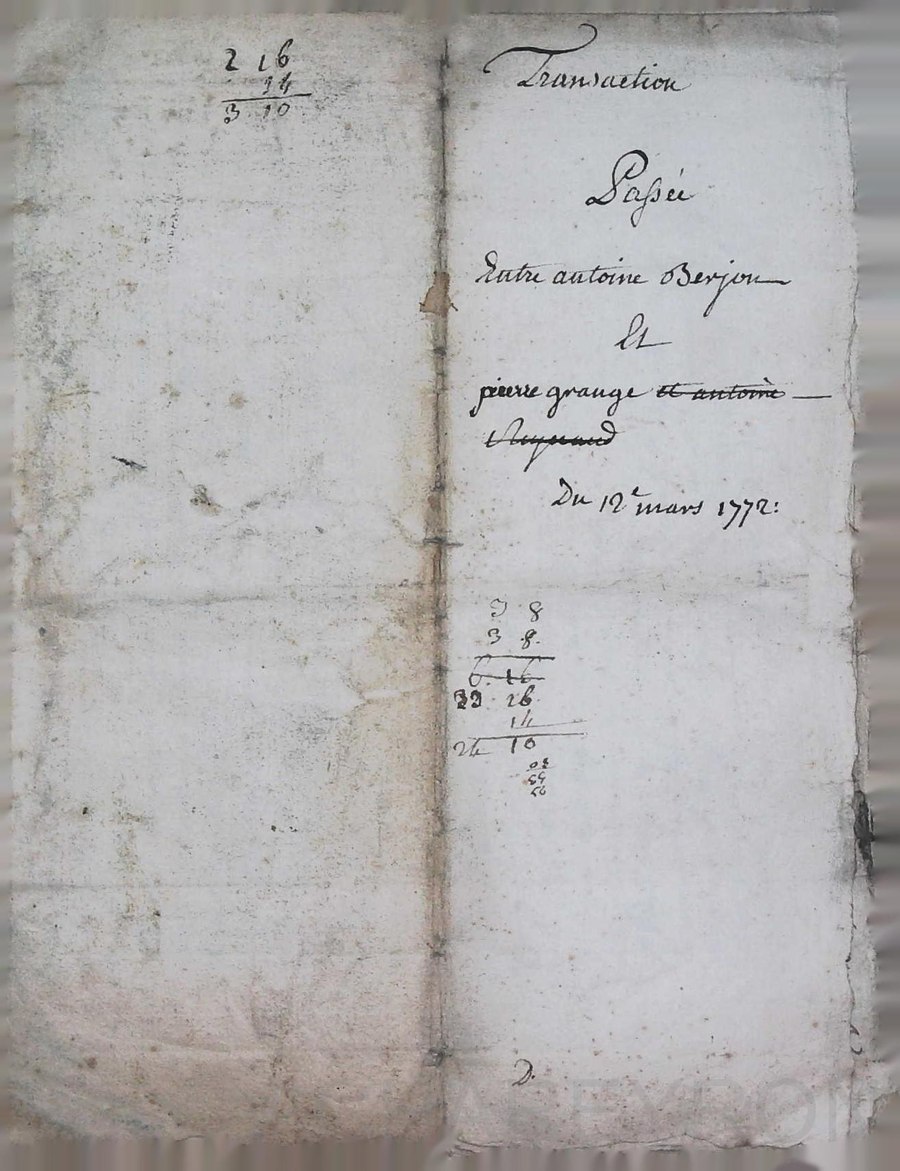 2 16
14
3 10
Transaction
Passée
Entre antoine Berjon
Et
pierre grange et antoine
Reynaud
Du 12e mars 1772:
3 8
3 8
6 16
33 16
14
24 10
D.